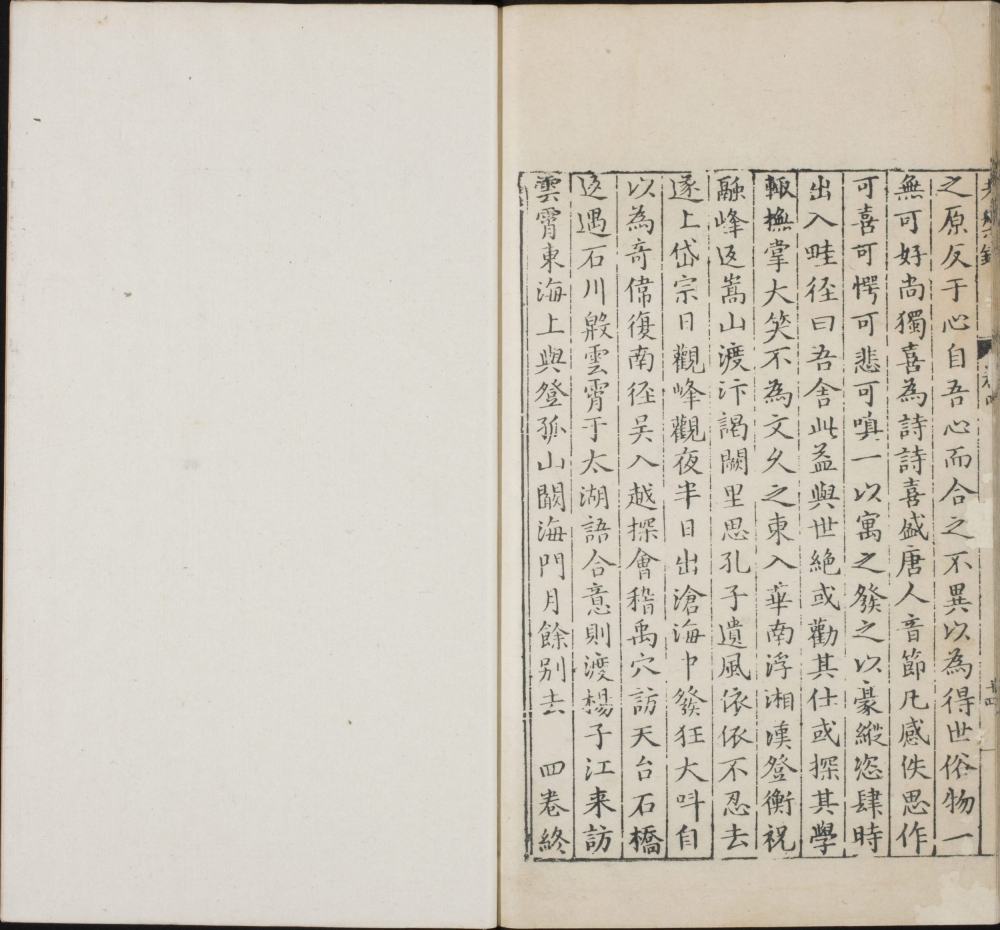 之原反于心自吾心而合之不異以為得世俗物一
無可好尚獨喜為詩詩喜盛唐人音節凡感佚思作
可喜可愕可悲可嗔一以寓之發之以豪縱恣肆時
出入畦徑曰吾舍此益與世絶或勸其仕或探其學
輙撫掌大笑不為文乆之東入華南浮湘漢登衡祝
融峰返嵩山渡汴謁闕里思孔子遺風依依不忍去
遂上岱宗日觀峰觀夜半日出滄海中發狂大呌自
以為奇偉復南徑吴入越探會稽禹穴訪天台石橋
返遇石川殷雲霄于太湖語合意則渡楊子江来訪
雲霄東海上與登孤山闞海門月餘别去 四卷終